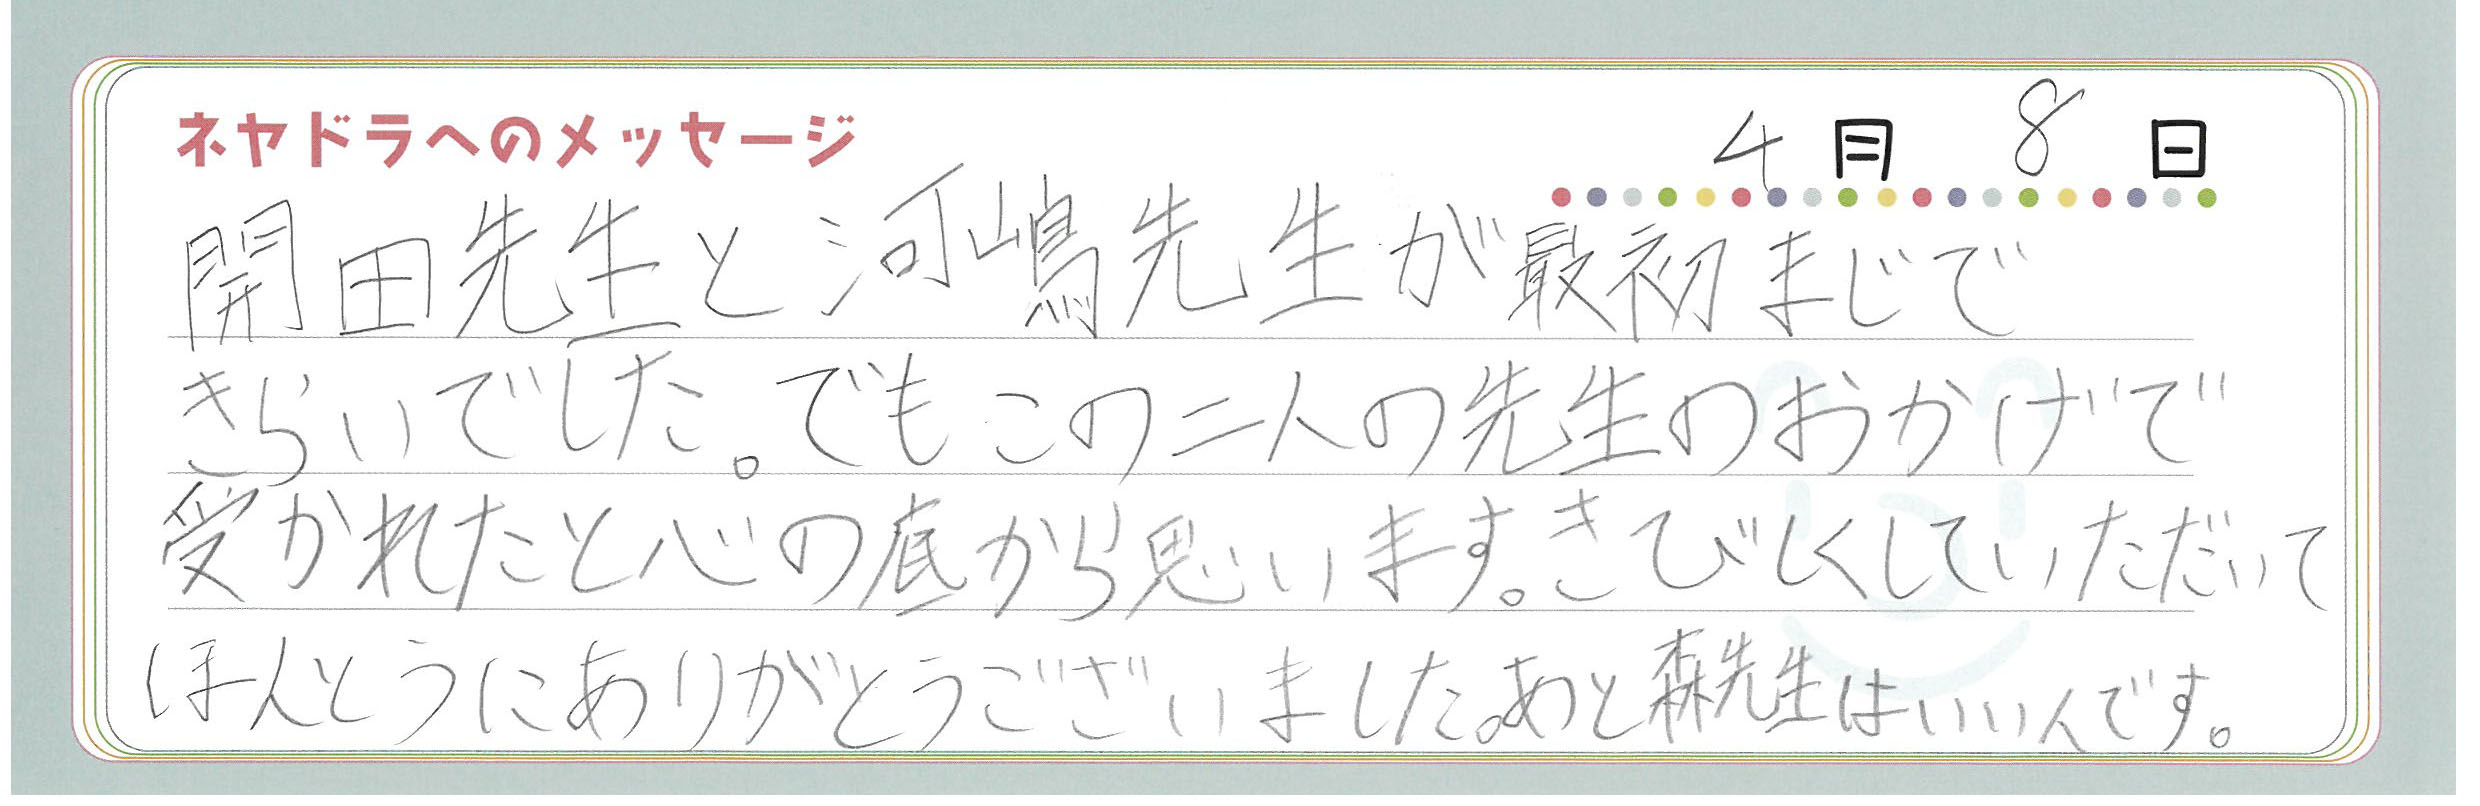 ネヤドラへのメッセージ
4月 8日
開田先生と河嶋先生が最初まじで
きらいでした。でもこの二人の先生のおかげで
受かれたと心の底から思います。きびしくしていただいて
ほんとうにありがとうございました。あと森先生はいい人です。